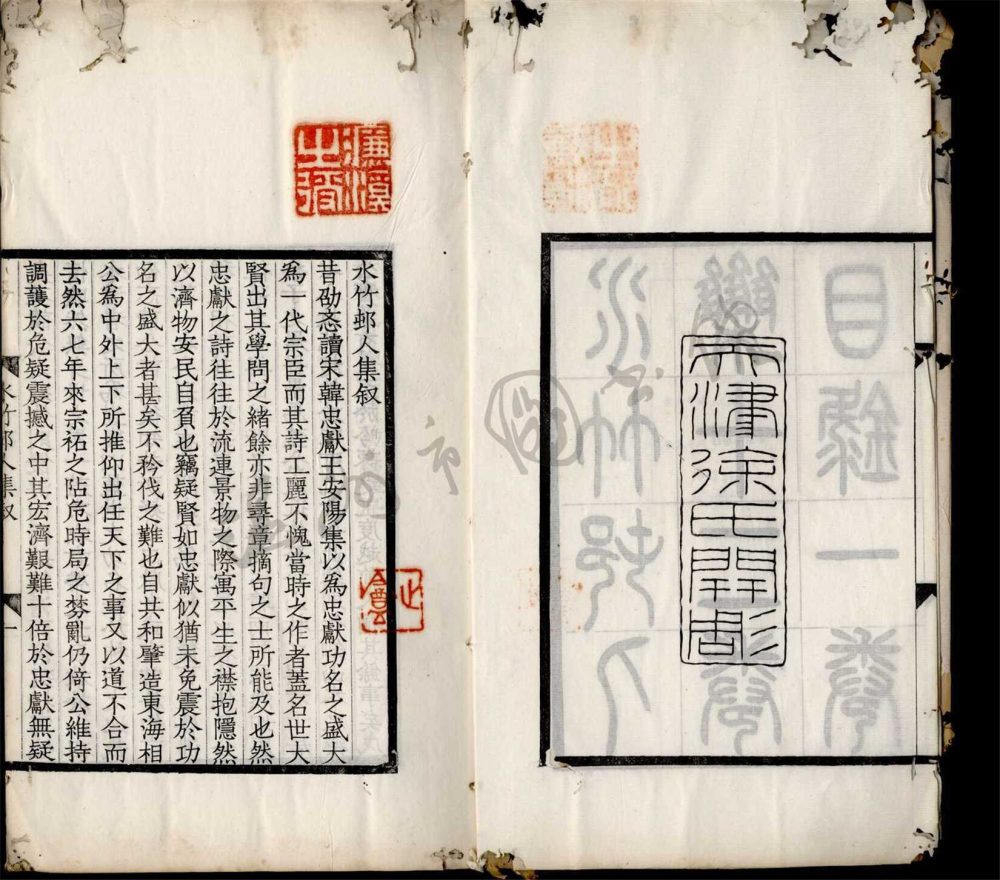 目錄一卷
天津徐氏開雕
水竹邨人
水竹邨人集叙
昔劭忞讀宋韓忠獻王安陽集以爲忠獻功名之盛大
爲一代宗臣而其詩工麗不愧當時之作者蓋名世大
賢出其學問之緒餘亦非尋章摘句之士所能及也然
忠獻之詩往往於流連景物之際寓平生之襟抱隱然
以濟物安民自負也竊疑賢如忠獻似猶未免震於功
名之盛大者甚矣不矜伐之難也自共和肇造東海相
公爲中外上下所推仰出任天下之事又以道不合而
去然六七年來宗祏之阽危時局之棼亂仍倚公維持
調護於危疑震撼之中其宏濟艱難十倍於忠獻無疑
水竹邨人集叙
一